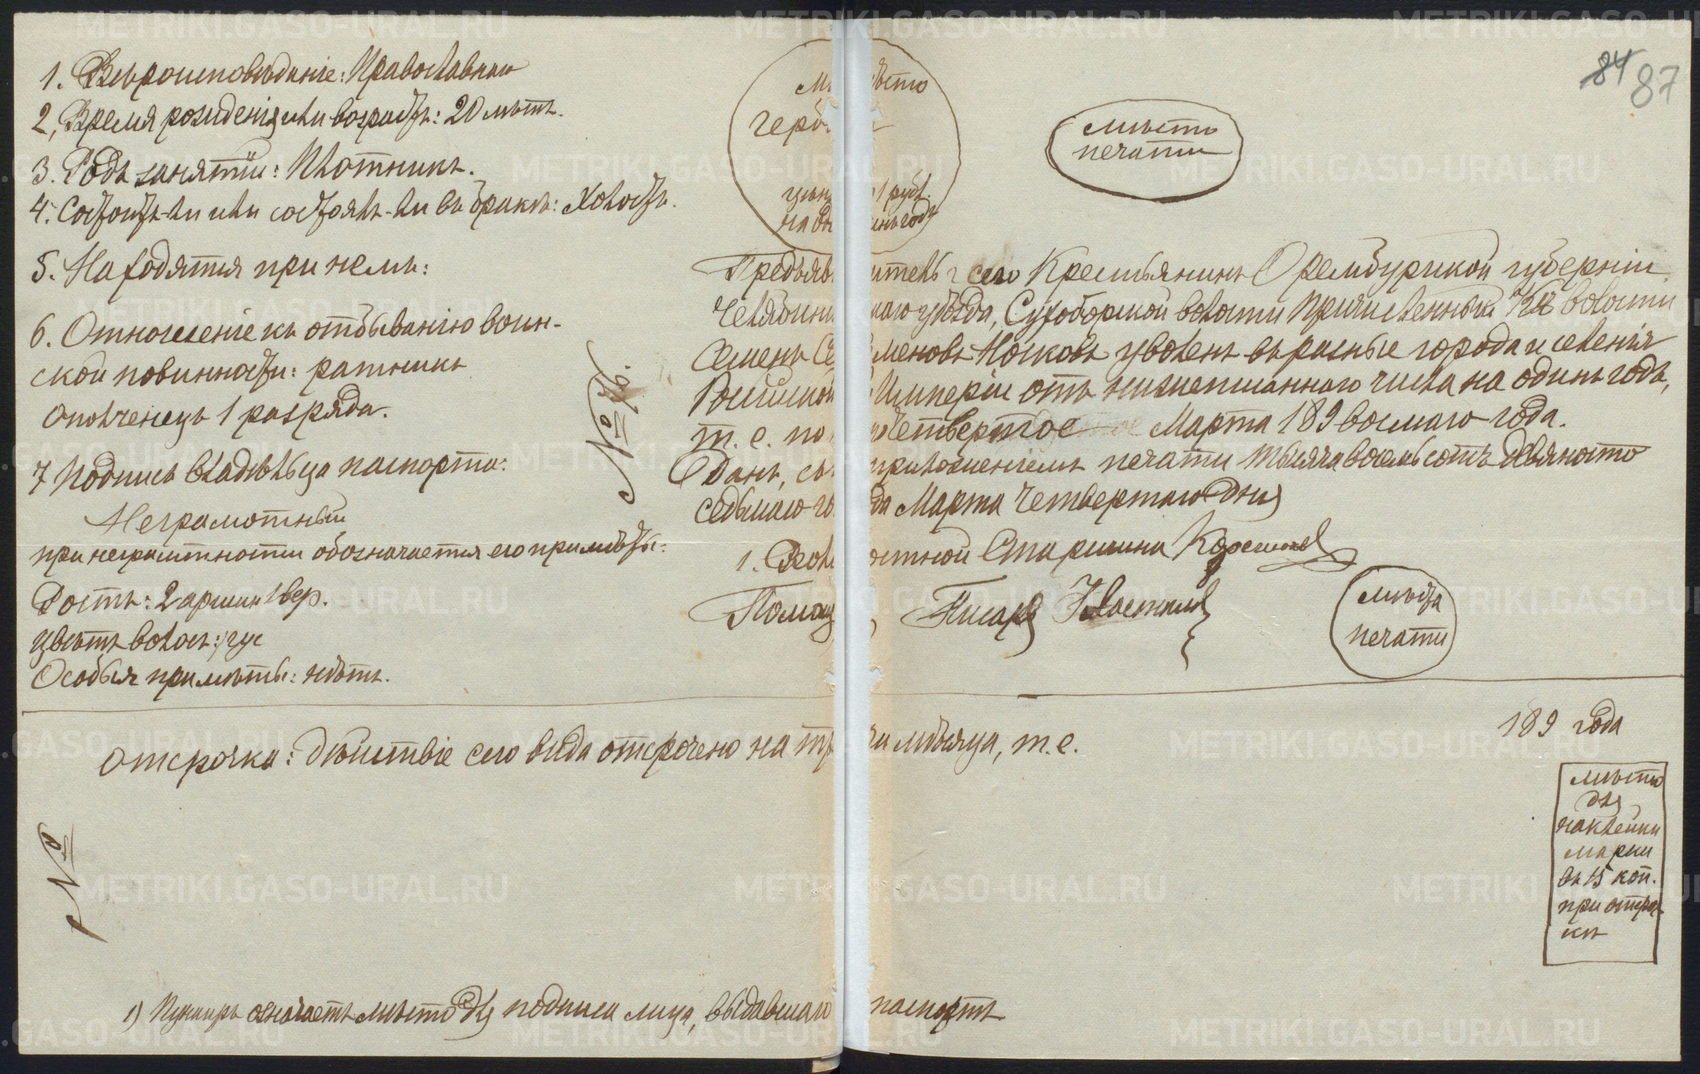 84 87
1. Вѣроисповѣданіе: Православнаго
2. Время рожденія или возрастъ: 20 лѣтъ.
3. Родъ занятій: Плотникъ.
4. Состоитъ-ли или состоялъ-ли въ бракѣ: Холостъ.
5. Находятся при немъ:
6. Отношеніе къ отбыванію воин-
ской повинности: ратникъ
ополченецъ 1 разряда.
7 Подпись владѣльца паспорта:
Неграмотный
при неграмотности обозначается его примѣты:
Ростъ: 2 аршин 1 вер.
цвѣтъ волосъ: рус
Особыя примѣты: нѣтъ.
Мѣсто
герб
цѣн 1 руб.
на годъ
мѣсто
печати
№
Предъявитель сего Крестьянинъ Оренбургской губерніи
Челябинскаго уѣзда, Сухоборской волости причисленный къ волости
Семенъ Семеновъ Носковъ уволенъ въ разные города и селенія
Россійской Имперіи отъ нижеписаннаго числа на одинъ годъ,
т. е. по четвертое Марта 189 восьмаго года.
Данъ, съ приложеніемъ печати тысяча восемьсотъ девяносто
седьмаго года Марта Четвертаго дня
1. Волостной Старшина
Помощ Писаря
мѣсто
печати
Отсрочка: дѣйствіе сего вида отсрочено на три мѣсяца, т. е. 189 года
№
мѣсто
для
наклейки
марки
въ 15 коп.
при отсроч-
кѣ
1) Пунктиръ означаетъ мѣсто для подписи лица, выдавшаго паспортъ
METRIKI.GASO-URAL.RU